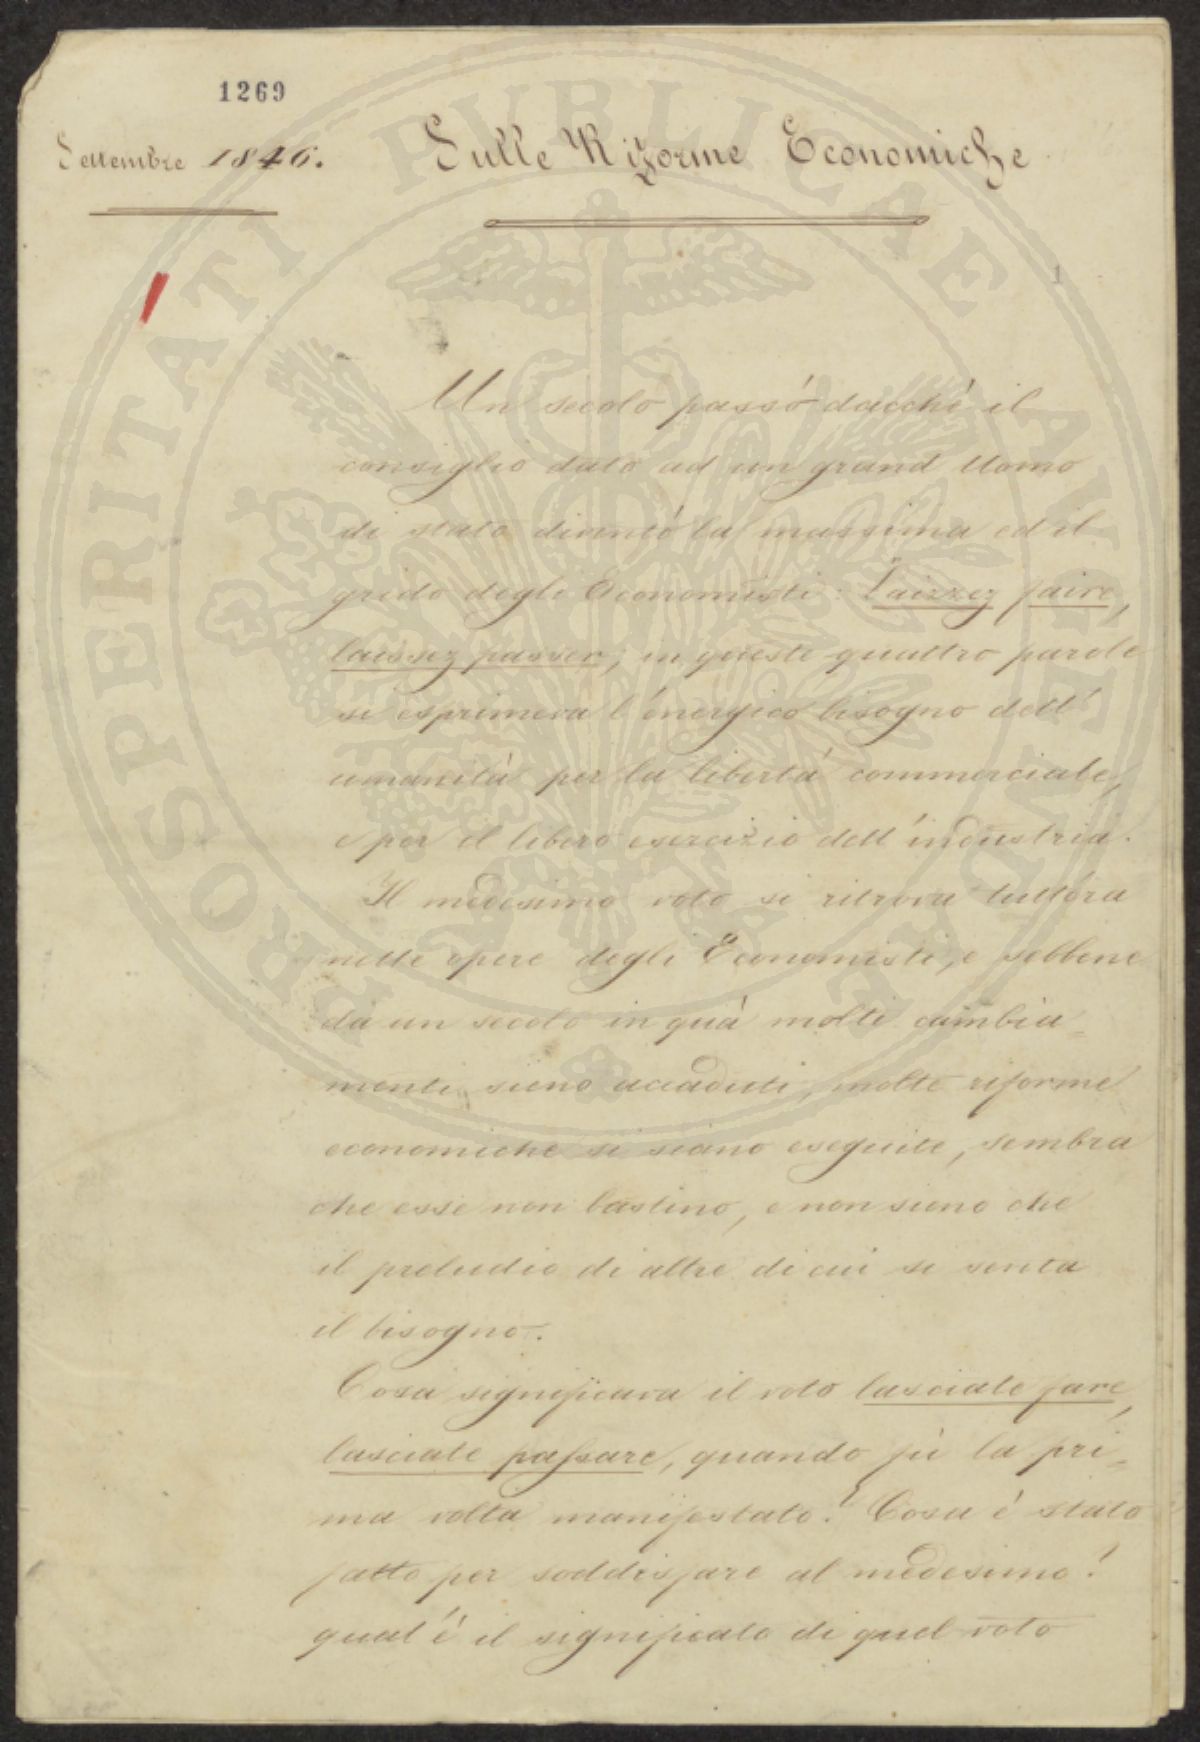 1269
Settembre 1846.
Sulle Riforme Economiche
1
Un secolo passò dacchè il
consiglio dato ad un grand Uomo
di stato diventò la massima ed il
grido degli Economisti: Laissez faire,
laissez passer; in queste quattro parole
si esprimeva l'energico bisogno dell'
umanità per la libertà commerciale,
e per il libero esercizio dell'industria.
Il medesimo voto si ritrova tuttora
nelle opere degli Economisti, e sebbene
da un secolo in quà molti cambia=
menti sieno accaduti, molte riforme
economiche si siano eseguite, sembra
che esse non bastino, e non sieno che
il preludio di altre di cui si senta
il bisogno.
Cosa significava il voto lasciate fare,
lasciate passare, quando fù la pri=
ma volta manifestato? Cosa è stato
fatto per soddisfare al medesimo?
qual'è il significato di quel voto
PROSPERITATI PUBLICAE AUGENDAE